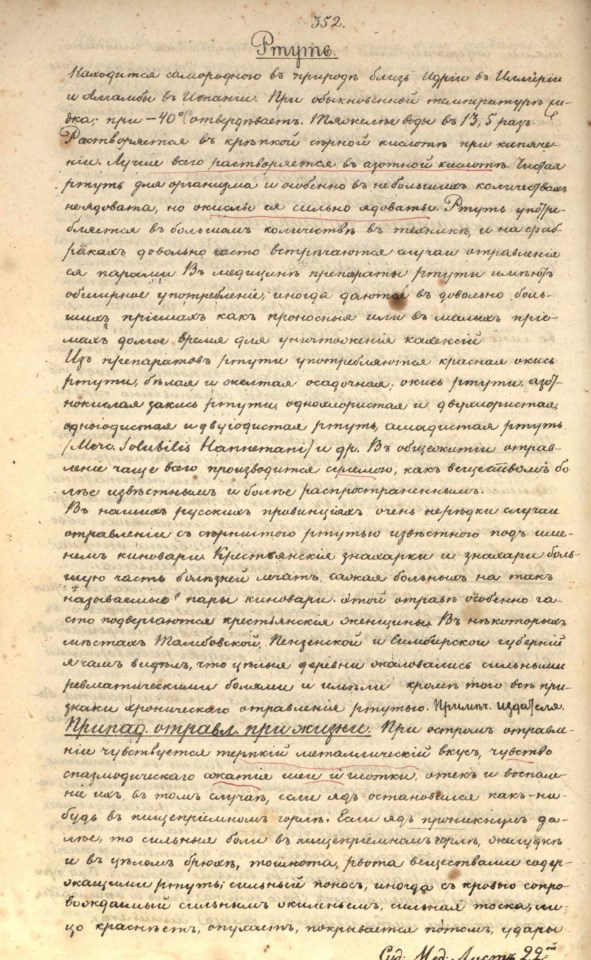 352.
Ртуть.
Находится самороднаго въ природѣ близь Идріи въ Иллиріи
и Алмадны въ Испаніи. При обыкновенной температурѣ жи-
дка; при −40° отвердѣваетъ. Тяжелѣе воды въ 13,5 разъ.
Растворяется въ крѣпкой сѣрной кислотѣ при кипяче-
ніи. Лучше всего растворяется въ азотной кислотѣ. Чистая
ртуть для организма и особенно въ небольшихъ количествахъ
неядовита, но окислы ея сильно ядовиты. Ртуть употре-
бляется въ большомъ количествѣ въ техникѣ, и на фаб-
рикахъ довольно часто встрѣчаются случаи отравленія
ея парами. Въ медицинѣ препараты ртути имѣютъ
обширное употребленіе, иногда даются въ довольно боль-
шихъ пріемахъ какъ проносныя или въ малыхъ пріе-
махъ долгое время для уничтоженія кахексій
Изъ препаратовъ ртути употребляются красная окись
ртути, бѣлая и желтая осадочная, окись ртути, азот-
нокислая закись ртути, однохлористая и двухлористая,
одноіодистая и двуіодистая ртуть, амидистая ртуть
/Merc. Solubilis Hannemani/ и др. Въ общежитіи отрав-
леніе чаще всего производится сулемою, какъ веществомъ бо-
лѣе извѣстнымъ и болѣе распространеннымъ.
Въ нашихъ русскихъ провинціяхъ очень нерѣдки случаи
отравленія съ сѣрнистою ртутью извѣстной подъ име-
немъ киновари. Крестьянскія знахарки и знахари боль-
шую часть болѣзней лечатъ, сажая больныхъ на такъ
называемые пары киновари. Этой отравѣ особенно ча-
сто подвергаются крестьянскія женщины. Въ нѣкоторыхъ
мѣстахъ Тамбовской, Пензенской и Симбирской губерній
я самъ видѣлъ, что цѣлыя деревни жаловались сильными
ревматическими болями и имѣли кромѣ того всѣ при-
знаки хроническаго отравленія ртутью. Примѣч. издателя.
Припад. отравл. при жизни. При остромъ отравле-
ніи чувствуется терпкій металлическій вкусъ, чувство
спазмодическаго сжатія шеи и глотки, отекъ и воспале-
ніе ихъ, въ томъ случаѣ, если ядъ остановился какъ-ни-
будь въ пищепріемномъ горлѣ. Если ядъ проникнулъ да-
лѣе, то сильныя боли въ пищепріемномъ горлѣ, желудкѣ
и въ цѣломъ брюхѣ, тошнота, рвота веществами содер-
жащими ртуть; сильный поносъ, иногда съ кровью сопро-
вождаемый сильнымъ жиленьемъ, сильная тоска, ли-
цо краснѣетъ, опухаетъ, покрывается потомъ, удары
Суд. Мед. Листъ 22й